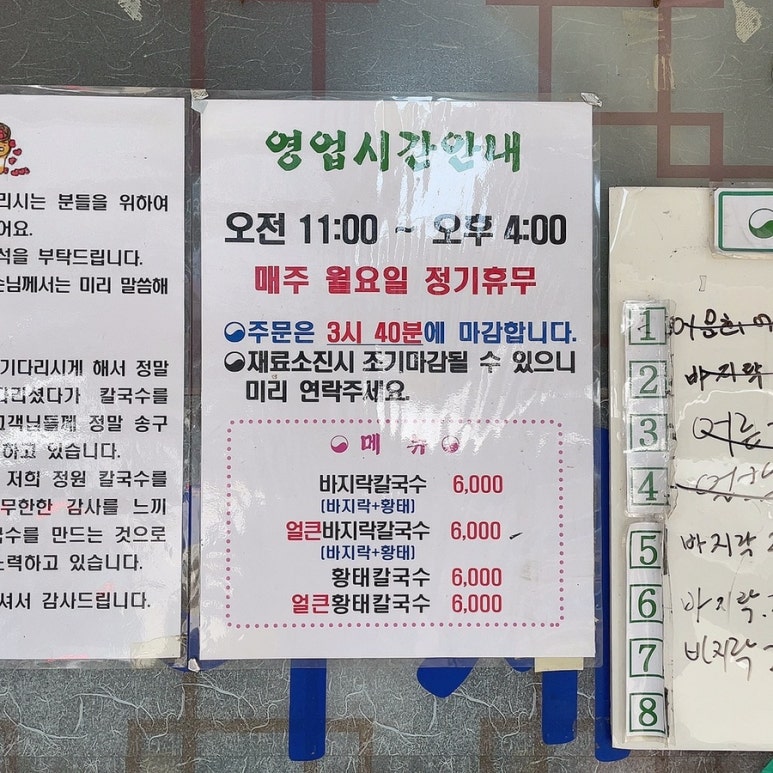 리시는 분들을 위하여
어요.
석을 부탁드립니다.
손님께서는 미리 말씀해
기다리시게 해서 정말
다리셨다가 칼국수를
고객님들께 정말 송구
하고 있습니다.
저희 정원 칼국수를
무한한 감사를 느끼
국수를 만드는 것으로
노력하고 있습니다.
셔서 감사드립니다.
영업시간안내
오전 11:00 ~ 오후 4:00
매주 월요일 정기휴무
주문은 3시 40분에 마감합니다.
재료소진시 조기마감될 수 있으니
미리 연락주세요.
메 뉴
바지락칼국수 6,000
(바지락+황태)
얼큰바지락칼국수 6,000
(바지락+황태)
황태칼국수 6,000
얼큰황태칼국수 6,000
1
2 바지락
3
4
5 바지락
6 바지락
7 바지락
8